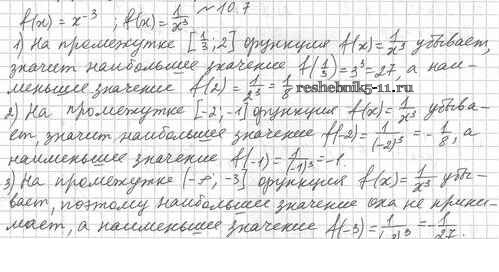 ~ 10.7
f(x) = x⁻³ ; f(x) = 1/x³
1) На промежутке [1/3; 2] функция f(x) = 1/x³ убывает,
значит наибольшее значение f(1/3) = 3³ = 27, а наи-
меньшее значение f(2) = 1/2³ = 1/8
reshebnik5-11.ru
2) На промежутке [-2; -1] функция f(x) = 1/x³ убыва-
ет, значит наибольшее значение f(-2) = 1/(-2)³ = -1/8, а
наименьшее значение f(-1) = 1/(-1)³ = -1.
3) На промежутке (-∞; -3] функция f(x) = 1/x³ убы-
вает, поэтому наибольшее значение она не прини-
мает, а наименьшее значение f(-3) = 1/(-3)³ = -1/27.